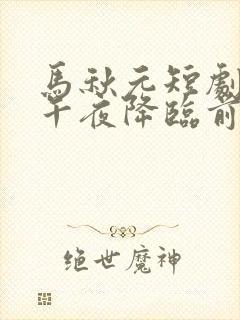 馬秋元短劇
午夜降臨前
绝世魔神